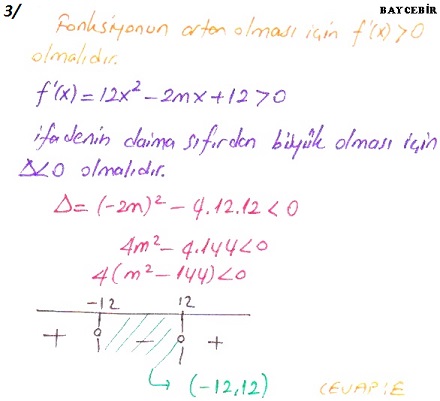 3/ BAYCEBİR
Fonksiyonun artan olması için f'(x)>0
olmalıdır.
f'(x)=12x²-2mx+12>0
ifadenin daima sıfırdan büyük olması için
Δ<0 olmalıdır.
Δ=(-2m)²-4.12.12<0
4m²-4.144<0
4(m²-144)<0
-12 12
+ - +
(-12,12) CEVAP:E